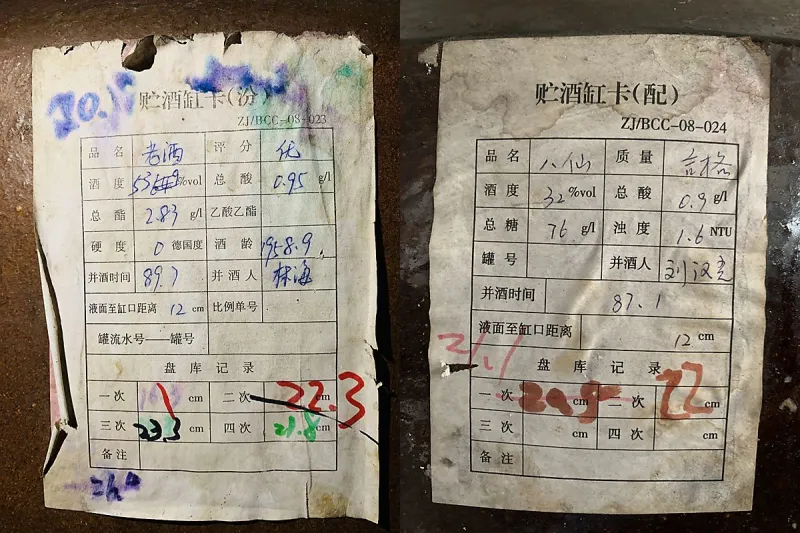 贮酒缸卡(汾)
ZJ/BCC-08-023
品名 老酒 评分 优
酒度 %vol 总酸 0.95 g/l
总酯 2.83 g/l 乙酸乙酯
硬度 0 德国度 酒龄 1958.9
并酒时间 89.7 并酒人 林海
液面至缸口距离 12 cm 比例单号
罐流水号——罐号
盘库记录
一次 cm 二次 22.3 cm
三次 23.3 cm 四次 21.8 cm
备注
贮酒缸卡(配)
ZJ/BCC-08-024
品名 八仙 质量 合格
酒度 32 %vol 总酸 0.9 g/l
总糖 76 g/l 浊度 1.6 NTU
罐号 并酒人 刘汉亮
并酒时间 87.1
液面至缸口距离 12 cm
盘库记录
一次 20.5 二次 22 cm
三次 cm 四次 cm
备注